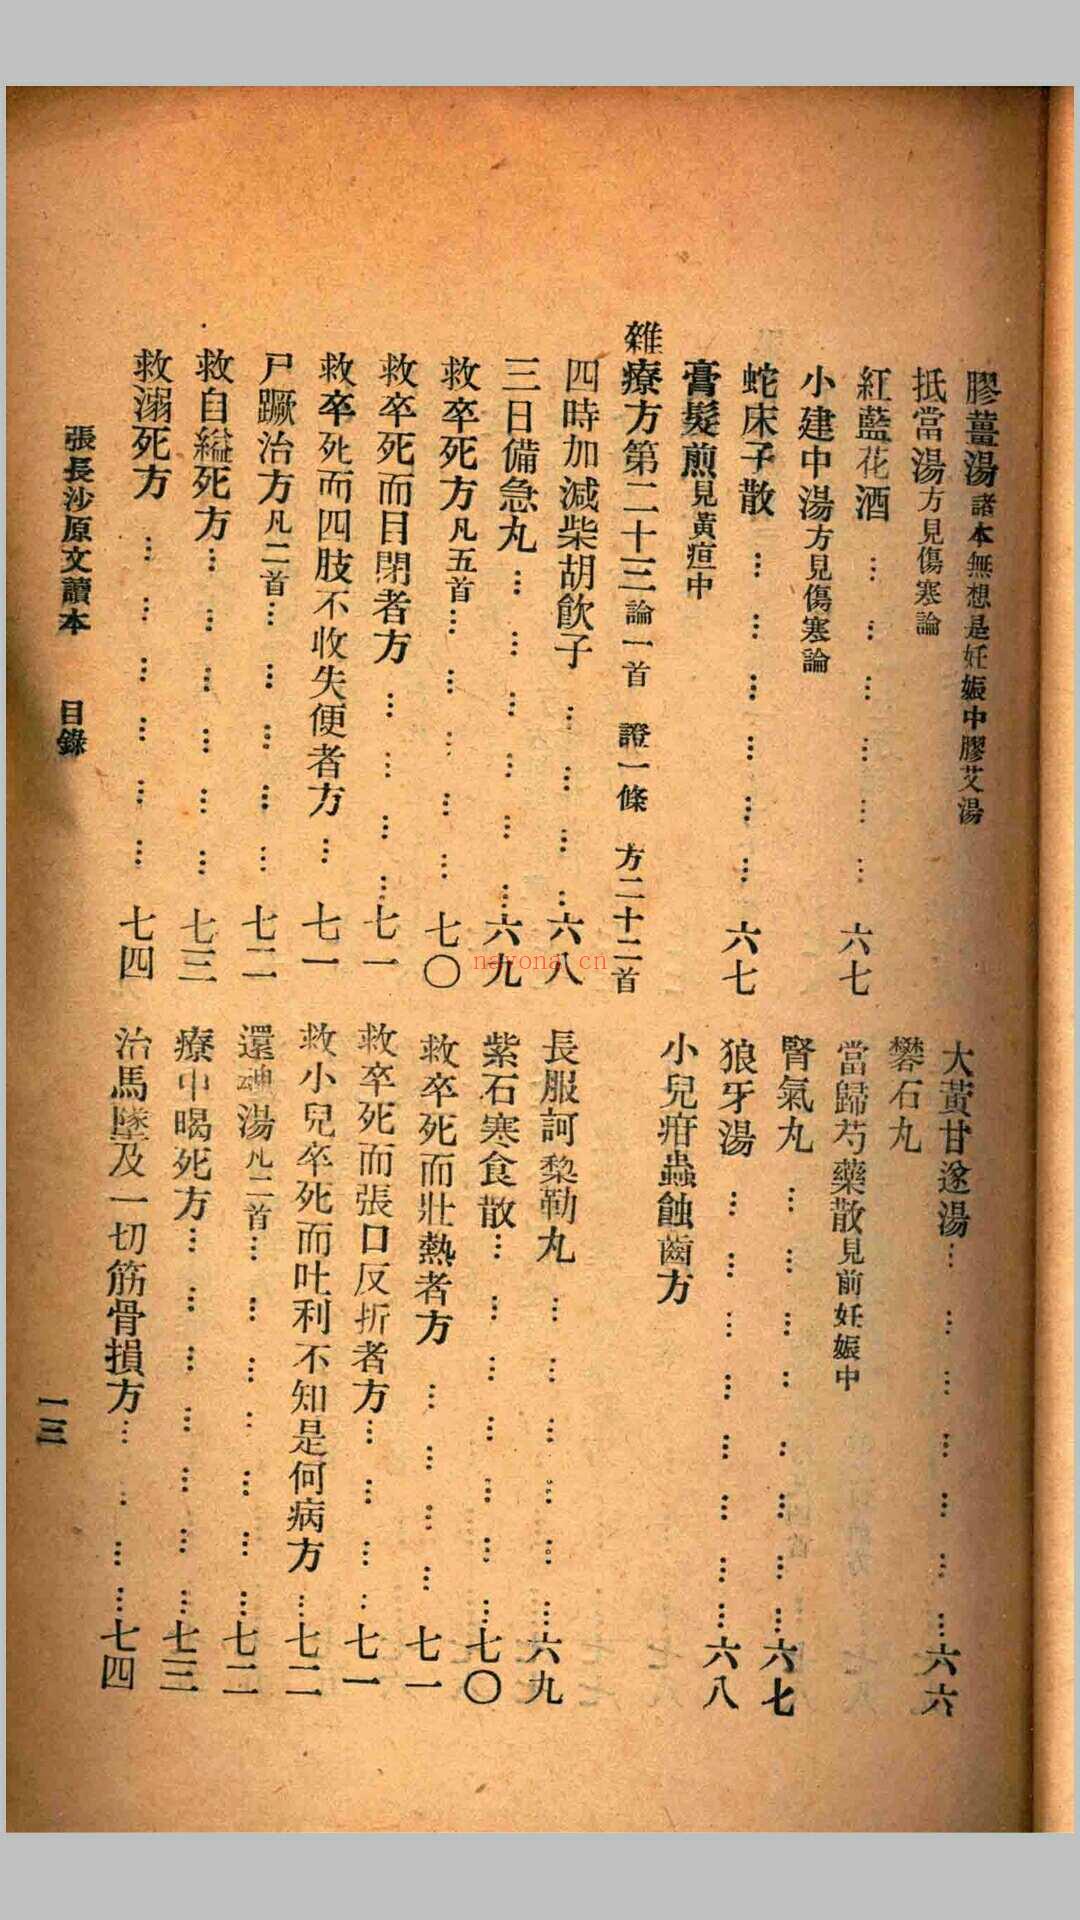 膠薑湯諸本無想是妊娠中膠艾湯
大黃甘遂湯…………………六六
抵當湯方見傷寒論
礬石丸
紅藍花酒………………六七
當歸芍藥散見前妊娠中
小建中湯方見傷寒論
腎氣丸………………………六七
蛇床子散………………六七
狼牙湯………………………六八
膏髮煎見黃疸中
小兒疳蟲蝕齒方
雜療方第二十三論一首 證一條 方二十二首
四時加減柴胡飲子…………六八
長服訶黎勒丸………………六九
三日備急丸………………六九
紫石寒食散…………………七〇
救卒死方凡五首……………七〇
救卒死而壯熱者方…………七一
救卒死而目閉者方…………七一
救卒死而張口反折者方………七一
救卒死而四肢不收失便者方…七一
救小兒卒死而吐利不知是何病方…七二
尸蹶治方凡二首……………七二
還魂湯凡二首………………七二
救自縊死方………………七三
療中暍死方…………………七三
救溺死方…………………七四
治馬墜及一切筋骨損方………七四
張長沙原文讀本 目錄 一三
nayona.cn